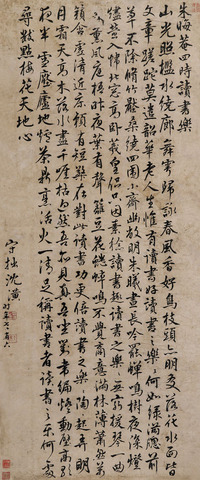 朱晦菴四時讀書樂
山光照檻水繞廊舞雩歸詠春風香好鳥枝頭亦朋友落花水面皆
文章蹉跎莫遣韶華老人生惟有讀書好讀書之樂樂何如綠滿窗前
草不除脩竹壓簷桑四圍小齋幽敞明朱曦晝長吟罷蟬鳴樹夜深燈
燼螢入幃北窗高臥羲皇侶只因素稔讀書趣讀書之樂樂無窮援琴一曲
來薰風庭梧昨夜葉有聲籬豆花開蟋蟀鳴不覺商意滿林薄蕭然萬
籟含虛清近床賴有短檠在對此讀書功更倍讀書之樂樂陶陶起弄明
月霜天高木落水盡千崖枯迥然吾亦見真吾坐對韋編燈動壁高歌
夜半雪壓廬地爐茶鼎烹活火一清足稱讀書者讀書之樂何處
尋數點梅花天地心
沈潢
時年七十有六